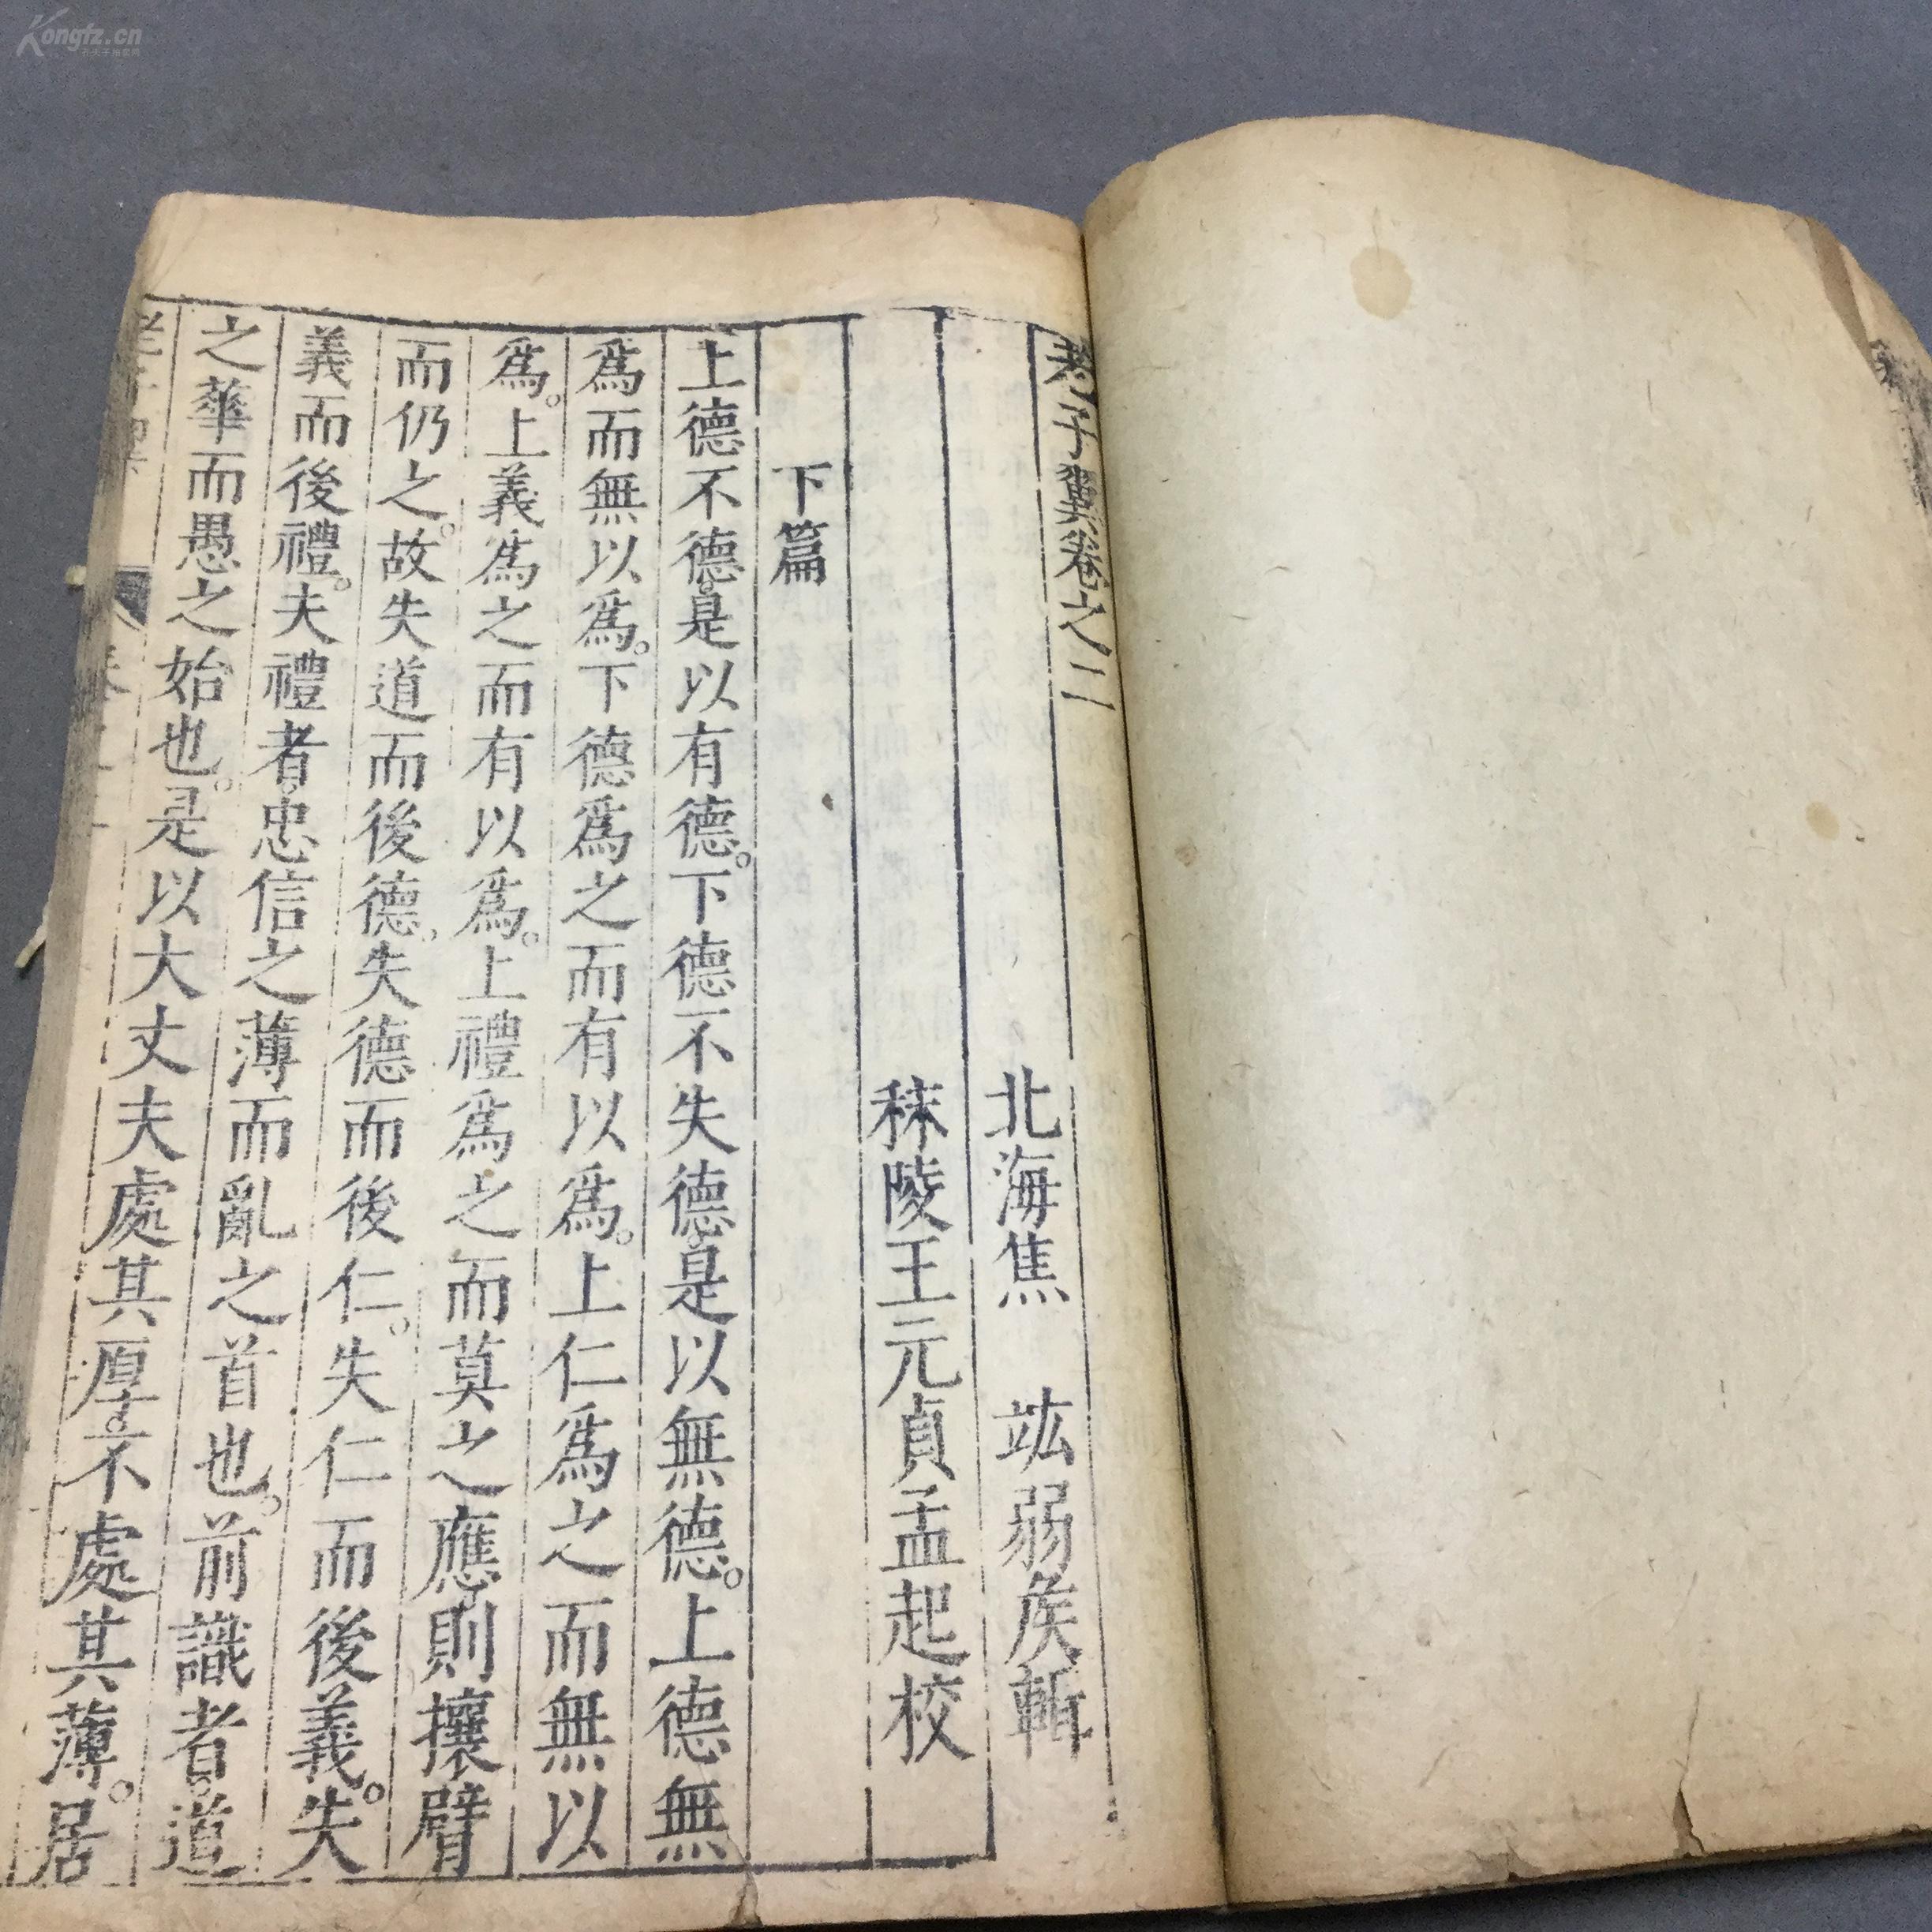 老子翼卷之二
北海焦 竑弱矦輯
秣陵王元貞孟起校
下篇
上德不德。是以有德。下德不失德。是以無德。上德無
爲而無以爲。下德爲之而有以爲。上仁爲之而無以
爲。上義爲之而有以爲。上禮爲之而莫之應。則攘臂
而仍之。故失道而後德。失德而後仁。失仁而後義。失
義而後禮。夫禮者。忠信之薄而亂之首也。前識者。道
之華而愚之始也。是以大丈夫處其厚。不處其薄。居
Kongfz.cn